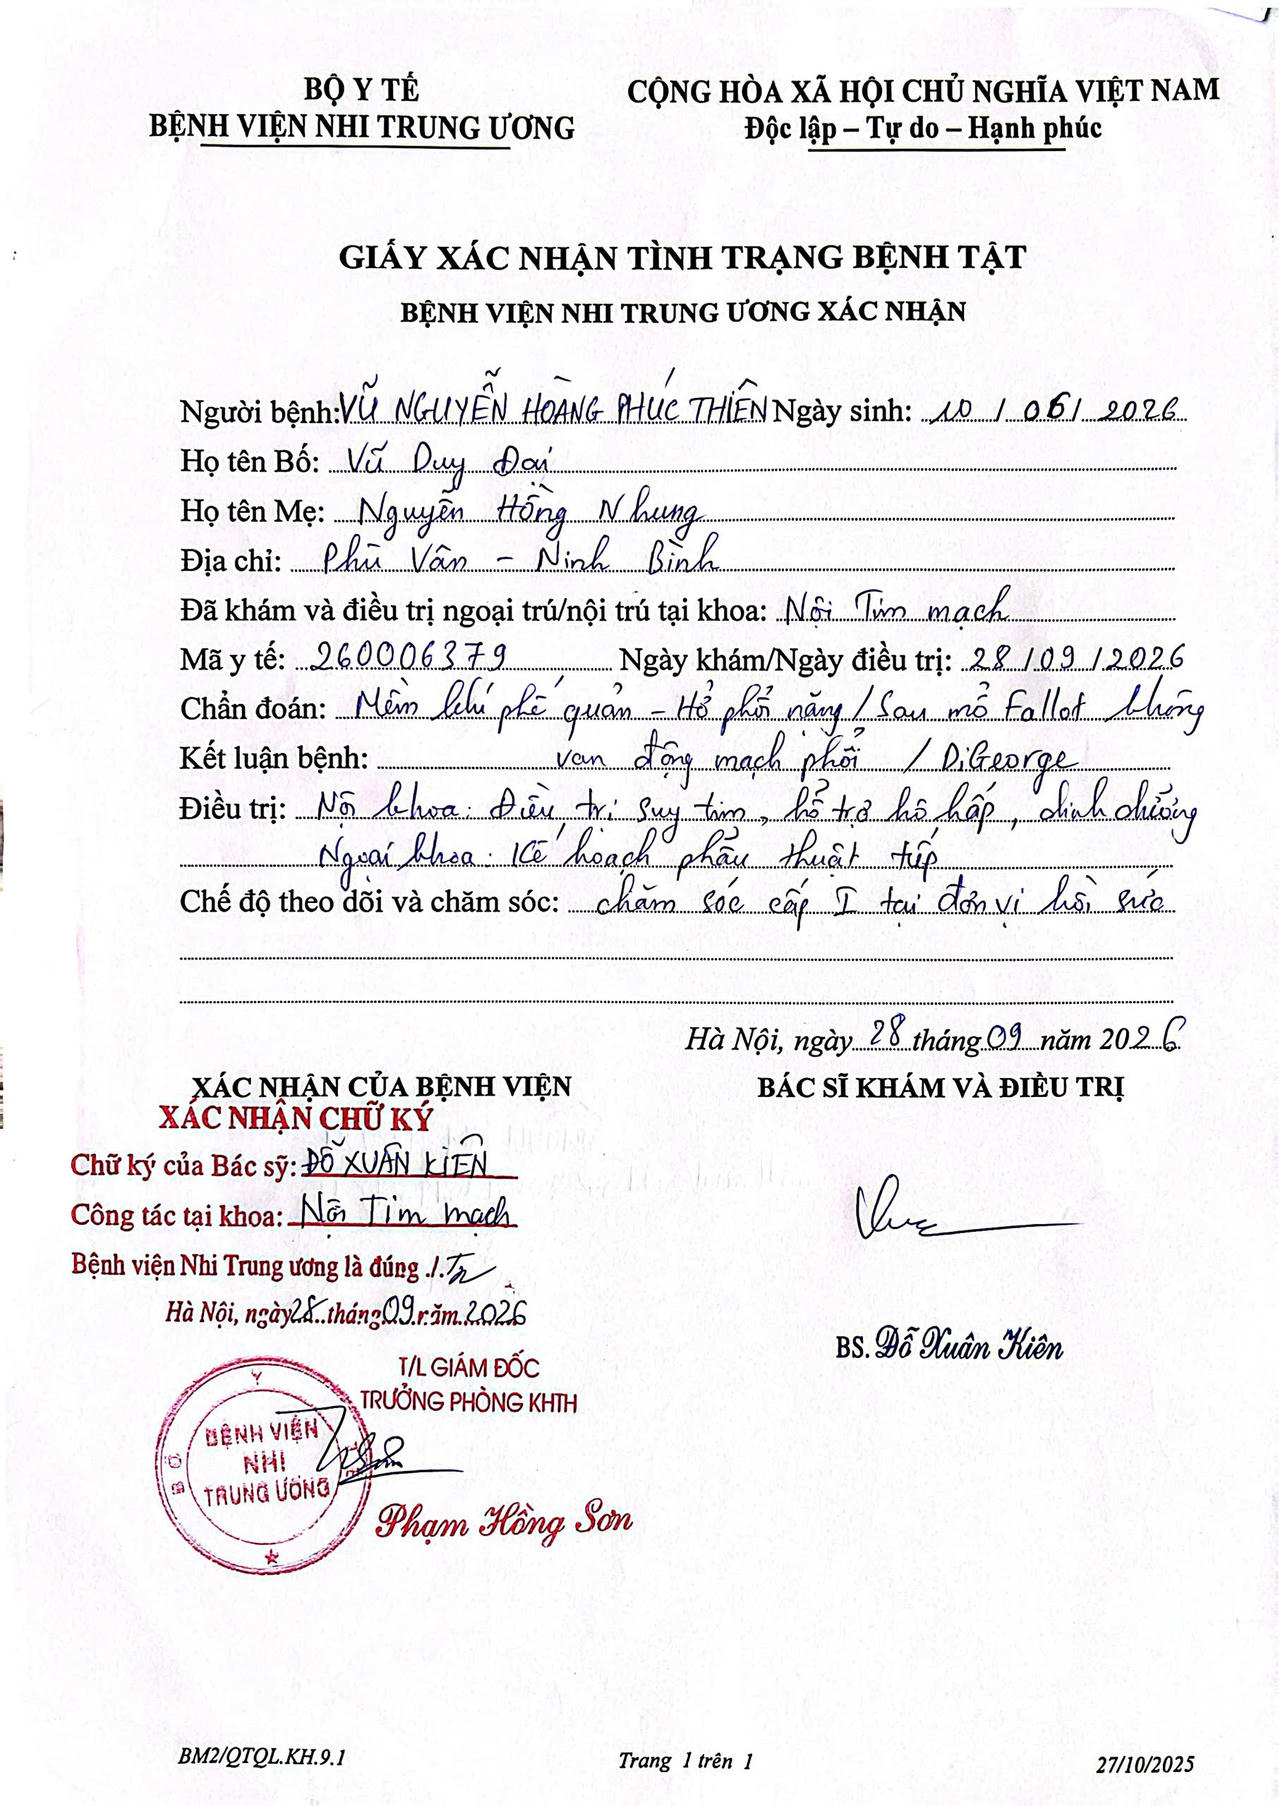 BỘ Y TẾ
BỆNH VIỆN NHI TRUNG ƯƠNG
CỘNG HÒA XÃ HỘI CHỦ NGHĨA VIỆT NAM
Độc lập – Tự do – Hạnh phúc
GIẤY XÁC NHẬN TÌNH TRẠNG BỆNH TẬT
BỆNH VIỆN NHI TRUNG ƯƠNG XÁC NHẬN
Người bệnh: VŨ NGUYỄN HOÀNG PHÚC THIÊN Ngày sinh: 10 / 06 / 2026
Họ tên Bố: Vũ Duy Đại
Họ tên Mẹ: Nguyễn Hồng Nhung
Địa chỉ: Phù Vân – Ninh Bình
Đã khám và điều trị ngoại trú/nội trú tại khoa: Nội Tim mạch
Mã y tế: 260006379 Ngày khám/Ngày điều trị: 28 / 09 / 2026
Chẩn đoán: Mềm khí phế quản – Hở phổi nặng / Sau mổ Fallot không
Kết luận bệnh: van động mạch phổi / DiGeorge
Điều trị: Nội khoa: Điều trị suy tim, hỗ trợ hô hấp, dinh dưỡng
Ngoại khoa: Kế hoạch phẫu thuật tiếp
Chế độ theo dõi và chăm sóc: chăm sóc cấp I tại đơn vị hồi sức
Hà Nội, ngày 28 tháng 09 năm 2026
XÁC NHẬN CỦA BỆNH VIỆN
BÁC SĨ KHÁM VÀ ĐIỀU TRỊ
XÁC NHẬN CHỮ KÝ
Chữ ký của Bác sỹ: ĐỖ XUÂN KIÊN
Công tác tại khoa: Nội Tim mạch
Bệnh viện Nhi Trung ương là đúng ./.
Hà Nội, ngày 28 tháng 09 năm 2026
BS. Đỗ Xuân Kiên
T/L GIÁM ĐỐC
TRƯỞNG PHÒNG KHTH
BỘ Y
BỆNH VIỆN
NHI
TRUNG ƯƠNG
Phạm Hồng Sơn
BM2/QTQL.KH.9.1
Trang 1 trên 1
27/10/2025